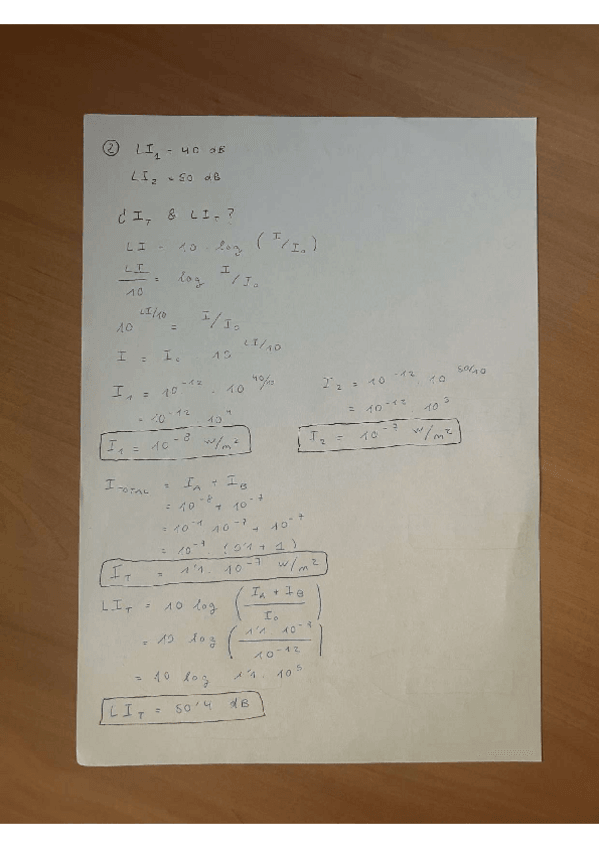 ② LI₁ = 40 dB
LI₂ = 50 dB
¿ I_T & LI_T ?
LI = 10 · log ( I/I₀ )
LI/10 = log I/I₀
10^(LI/10) = I/I₀
I = I₀ · 10^(LI/10)
I₁ = 10⁻¹² · 10^(40/10)
= 10⁻¹² · 10⁴
I₁ = 10⁻⁸ W/m²
I₂ = 10⁻¹² · 10^(50/10)
= 10⁻¹² · 10⁵
I₂ = 10⁻⁷ W/m²
I_TOTAL = I_A + I_B
= 10⁻⁸ + 10⁻⁷
= 10⁻¹ · 10⁻⁷ + 10⁻⁷
= 10⁻⁷ · (0'1 + 1)
I_T = 1'1 · 10⁻⁷ W/m²
LI_T = 10 log ( (I_A + I_B) / I₀ )
= 10 log ( 1'1 · 10⁻⁷ / 10⁻¹² )
= 10 log 1'1 · 10⁵
LI_T = 50'4 dB